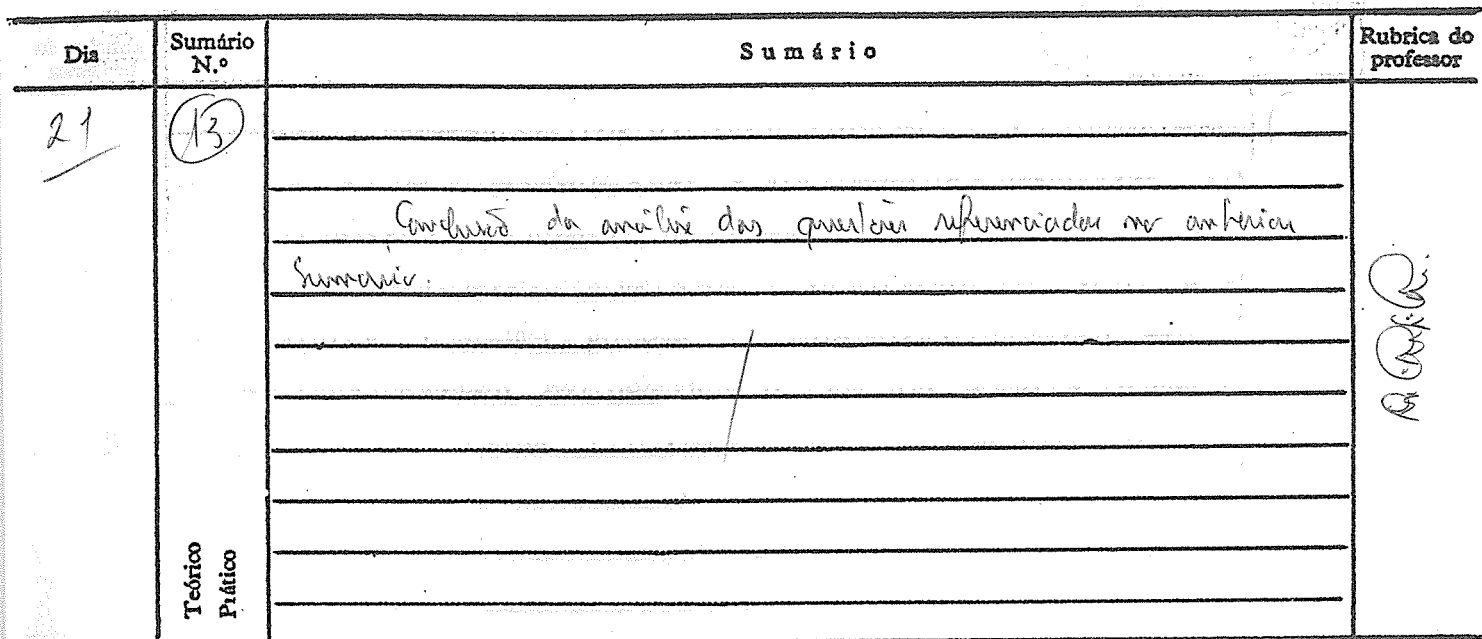 Dia
Sumário N.º
Sumário
Rubrica do professor
21
13
Conclusão da análise das questões referenciadas no anterior
Sumário.
Teórico
Prático